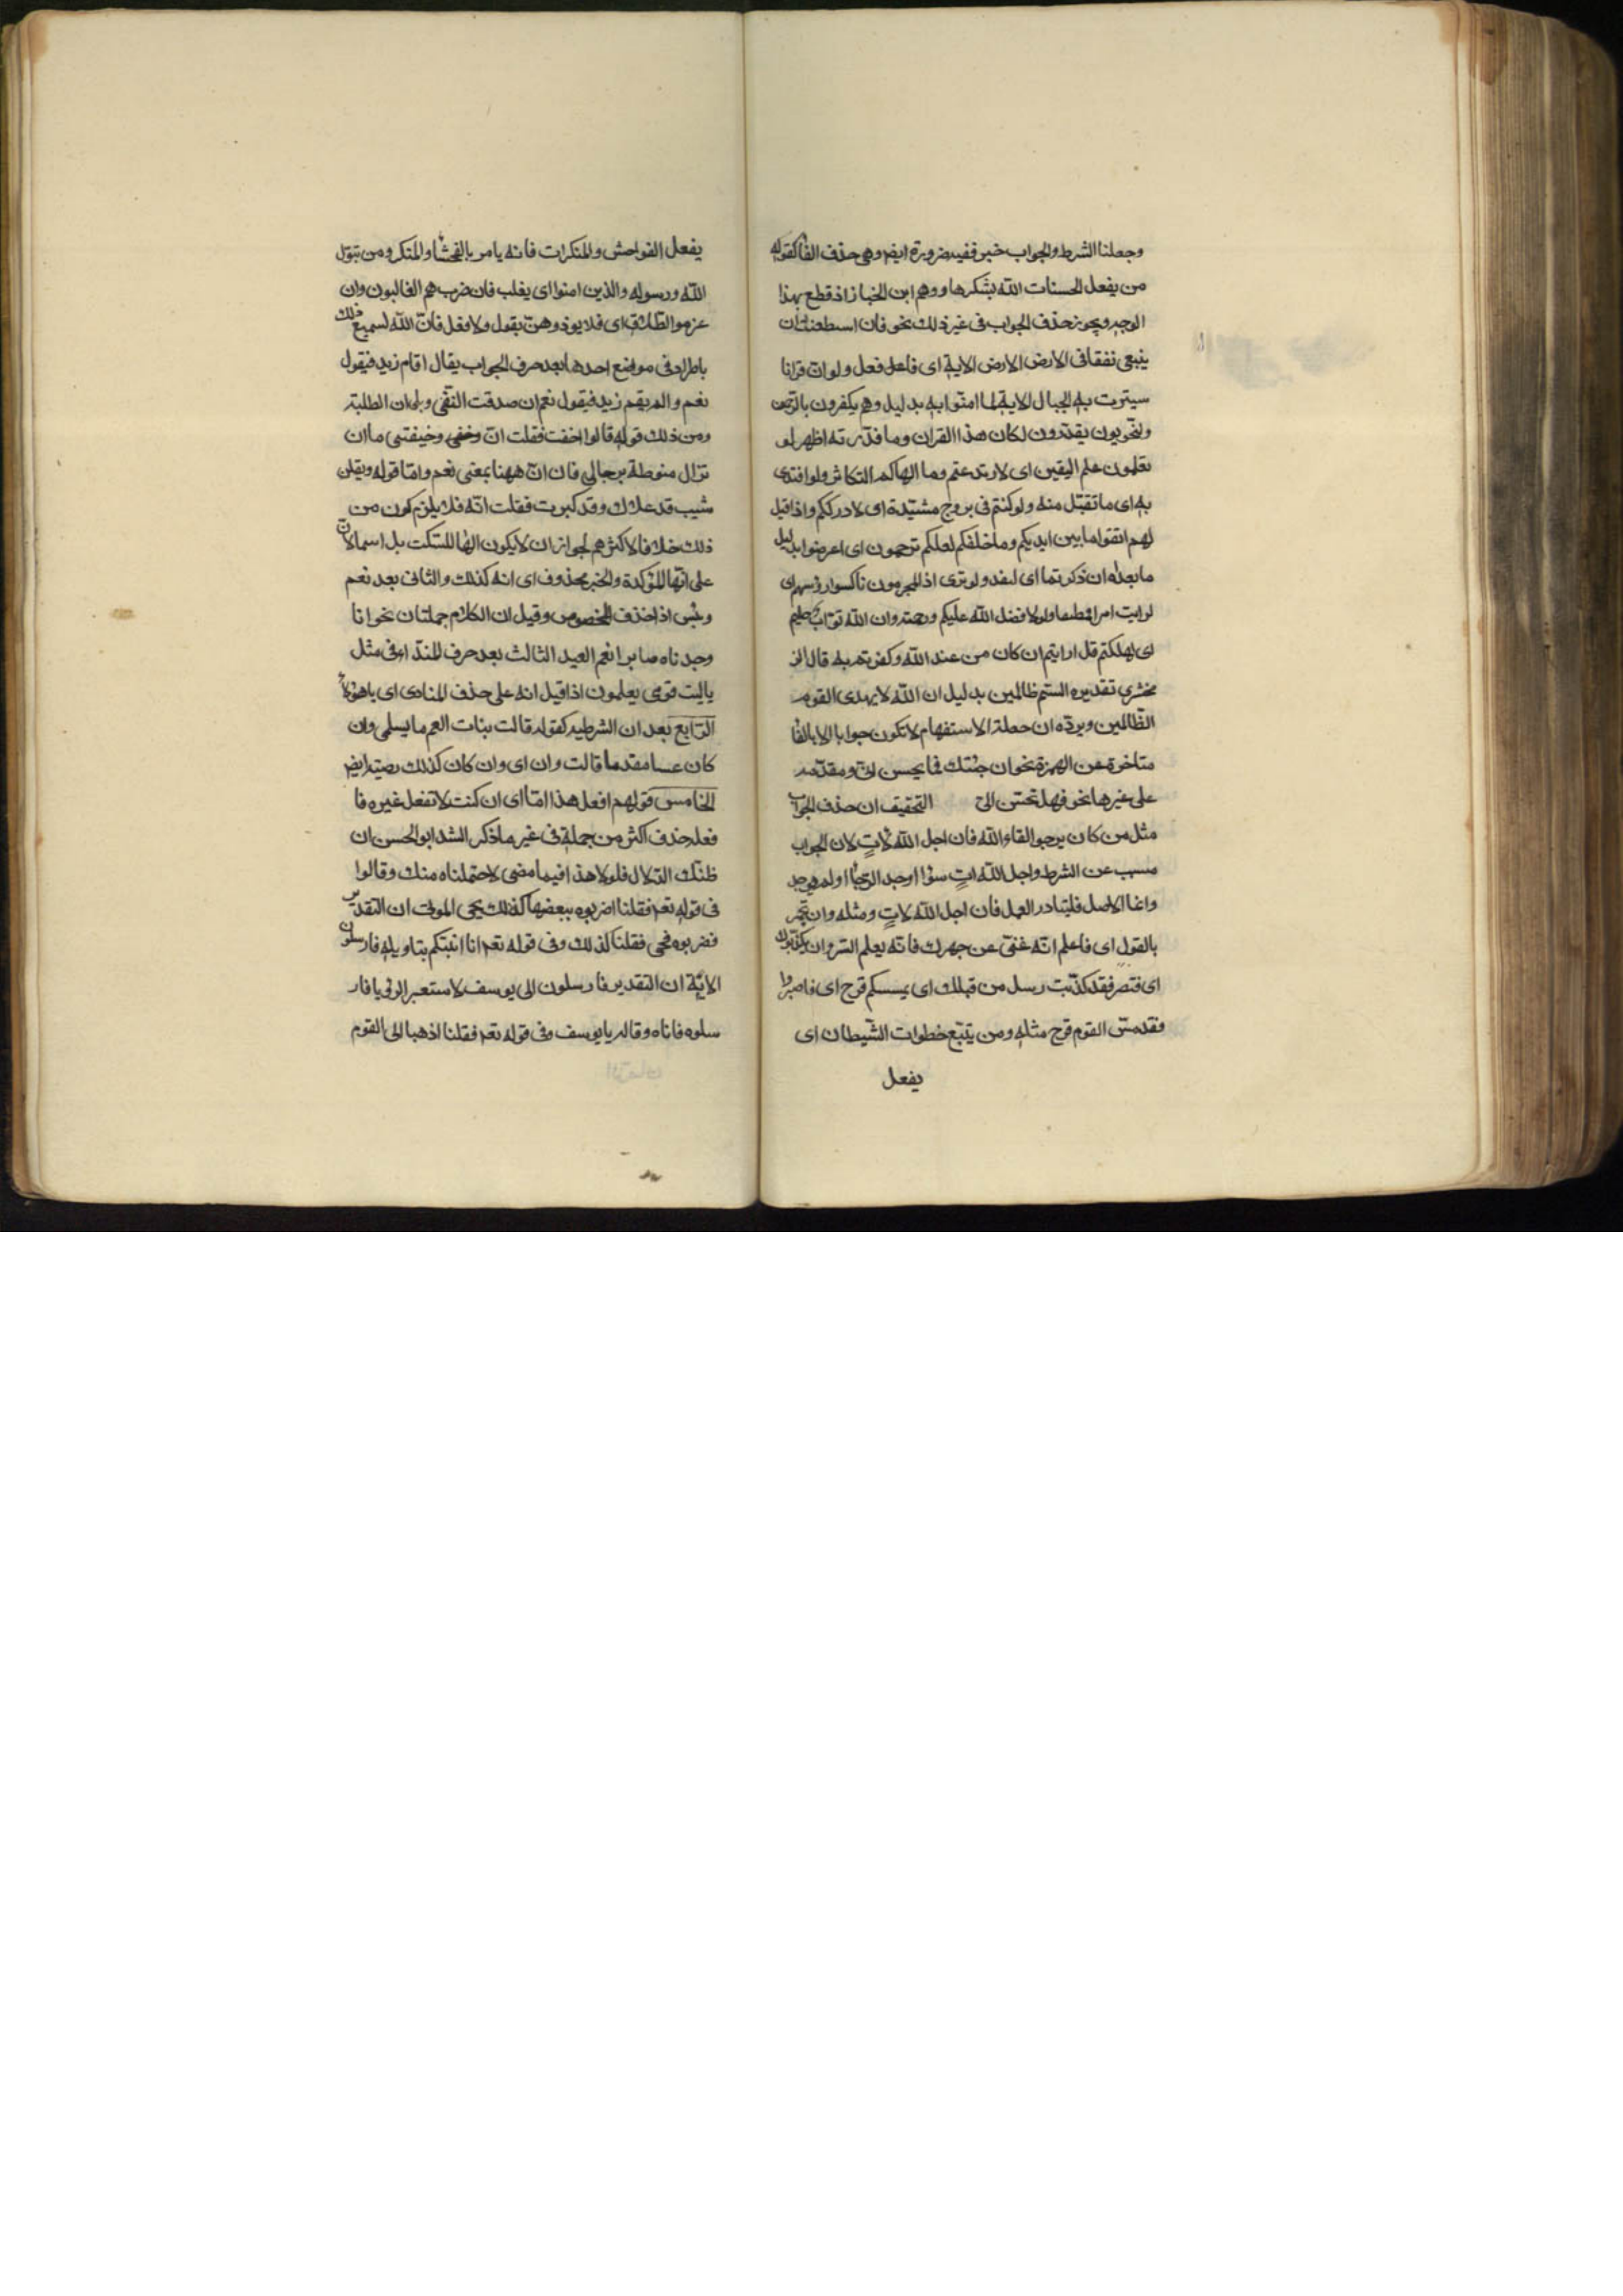 وجعلنا الشرط والجواب خبر ففيه ضرورة ايضا وهى حذف الفا كقوله
من يفعل الحسنات الله يشكرها ووهم ابن الخباز اذ قطع بهذا
الوجه ويجوز حذف الجواب فى غير ذلك نحو فان اسطعت ان
ينبغى نفقا فى الارض الارض الاية اى فافعل فعل ولو ان قرانا
سيترت به الجبال الاية لما امنوا به بدليل وهم يكفرون بالرحمن
ولنحويون يقدرون لكان هذا القران وما قدرته اظهر لو
تعلمون علم اليقين اى لارتدعتم وما الهاكم التكاثر ولو افتدى
به اى ما تقبل منه ولو كنتم فى بروج مشيدة اى لادرككم واذا قيل
لهم اتقوا ما بين ايديكم وما خلفكم لعلكم ترحمون اى اعرضوا بدليل
ما بعده ان ذكرتما اى لنفد ولو ترى اذ المجرمون ناكسوا رؤسهم اى
لرايت امرا فظيعا ولولا فضل الله عليكم ورحمته وان الله تواب حكيم
اى لهلكتم قل ارايتم ان كان من عند الله وكفرتم به قال الز
مخشرى تقديره الستم ظالمين بدليل ان الله لا يهدى القوم
الظالمين ويرده ان جملة الاستفهام لا تكون جوابا الا بالفا
متاخرة عن الهمزة نحو ان جئتك فما يحسن الى ومقدمه
على غيرها نحو فهل تحسن الى التحقيق ان حذف الجواب
مثل من كان يرجوا لقاء الله فان اجل الله لات لان الجواب
مسبب عن الشرط واجل الله ات سوٓا اوجد الرجا او لم يوجد
وانما الاصل فليبادر العمل فان اجل الله لات ومثله وان تجهر
بالقول اى فاعلم انه غنى عن جهرك فانه يعلم السر وان يكذبوك
اى فتصبر فقد كذبت رسل من قبلك اى يمسسكم قرح اى فاصبروا
فقد مس القوم قرح مثله ومن يتبع خطوات الشيطان اى
يفعل
يفعل الفواحش والمنكرات فانه يامر بالفحشا والمنكر ومن يتول
الله ورسوله والذين امنوا اى يغلب فان حزب هم الغالبون وان
عزموا الطلاق اى فلا يوذوهن بقول ولا فعل فان الله لسميع ذلك
باطراد فى مواضع احدها بعد حرف الجواب يقال اقام زيد فيقول
نعم والم يقم زيد فيقول نعم ان صدقت النفى وبلى ان الطلبته
ومن ذلك قوله قالوا اخفت فقلت ان وخفى وخيفتى ما ان
تزال منوطة برجالى فان ان ههنا بمعنى نعم واما قوله ويقلن
شيب قد علاك وقد كبرت فقلت انه فلا يلزم كون من
ذلك خلافا لاكثرهم لجواز ان لا يكون الها للسكت بل اسما لان
على انها المؤكدة والخبر محذوف اى انه كذلك والثانى بعد نعم
وبئس اذا حذف المخصوص وقيل ان الكلام جملتان نحو انا
وجدناه صابرا نعم العبد الثالث بعد حرف الندا فى مثل
ياليت قومى يعلمون اذا قيل انه على حذف المنادى اى يا هؤلاء
الرابع بعد ان الشرطيه كقوله قالت بنات العم يا سلمى وان
كان عسا مقدما قالت وان اى وان كان كذلك رضيته ايضا
الخامس قولهم افعل هذا اما اى ان كنت لا تفعل غيره فا
فعله حذف اكثر من جملة فى غير ما ذكر انشد ابو الحسن ان
طبك الدلال فلو لا هذا فيما مضى لاحتملناه منك وقالوا
فى قوله تعم فقلنا اضربوه ببعضها كذلك يحى الموتى ان التقدير
فضربوه فحى فقلنا كذلك وفى قوله تعم انا انبئكم بتاويله فارسلون
الاية ان التقدير فارسلون الى يوسف لاستعبر الرؤيا فار
سلوه فاتاه وقال يا يوسف وفى قوله تعم فقلنا اذهبا الى القوم